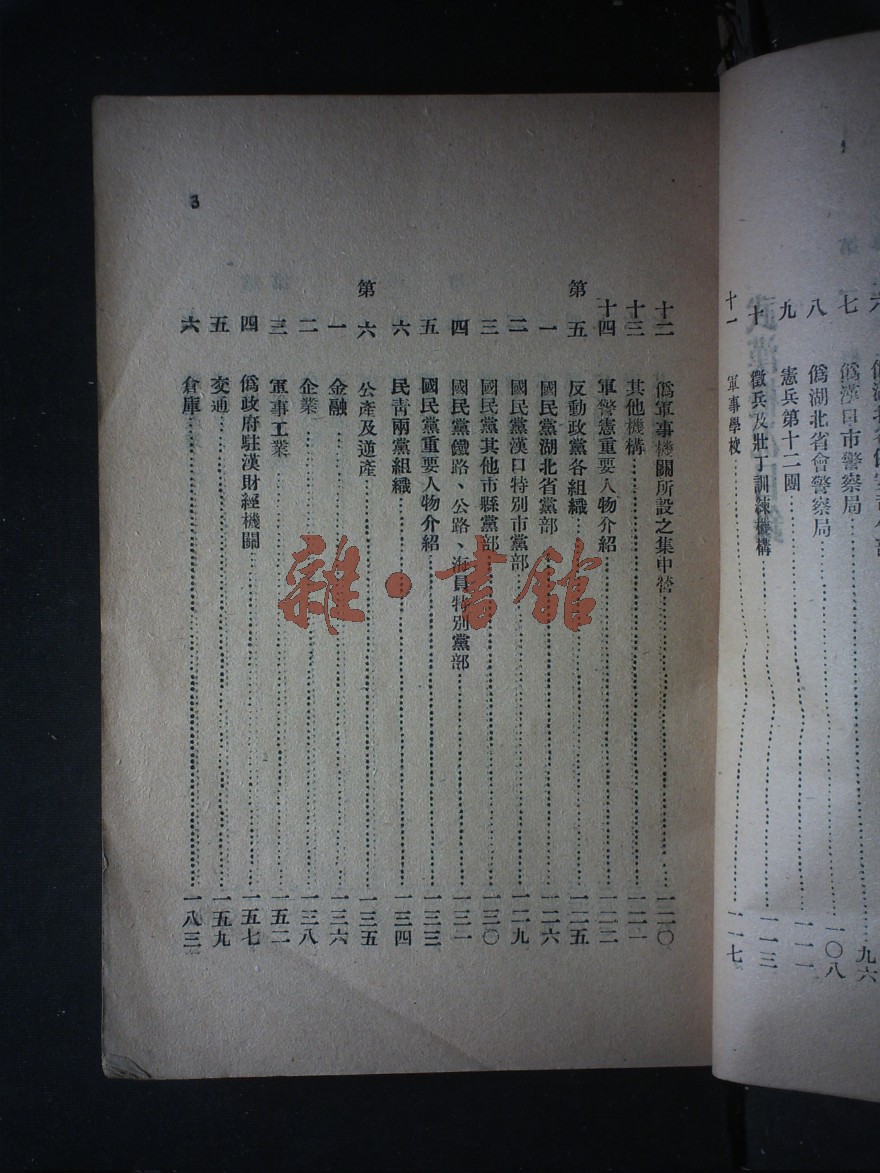 七 僞漢口市警察局……九六
八 僞湖北省會警察局……一〇八
九 憲兵第十二團……一一一
十 徵兵及壯丁訓練機構……一一三
十一 軍事學校……一一七
十二 僞軍事機關所設之集中營……一二〇
十三 其他機構……一二一
十四 軍警憲重要人物介紹……一二二
第五 反動政黨各組織……一二五
一 國民黨湖北省黨部……一二六
二 國民黨漢口特別市黨部……一二九
三 國民黨其他市縣黨部……一三〇
四 國民黨鐵路、公路、海員特別黨部……一三一
五 國民黨重要人物介紹……一三三
六 民青兩黨組織……一三四
第六 公產及逆產……一三五
一 金融……一三六
二 企業……一三八
三 軍事工業……一五二
四 僞政府駐漢財經機關……一五七
五 交通……一五九
六 倉庫……一八三
3
雜·書館